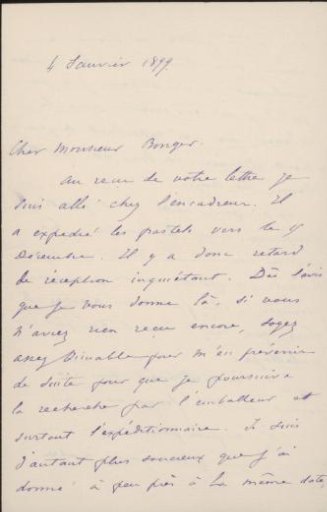 4 Janvier 1899
Cher Monsieur Bonger.
Au reçu de votre lettre je
suis allé chez l'encadreur. Il
a expédié les pastels vers le 9
Décembre. Il y a donc retard
de réception inquiétant. Dès l'avis
que je vous donne là, si vous
n'aviez rien reçu encore, soyez
assez aimable pour m'en prévenir
de suite pour que je poursuive
la recherche par l'emballeur et
surtout l'expéditionnaire. Je suis
d'autant plus soucieux que j'ai
donné à peu près à la même date